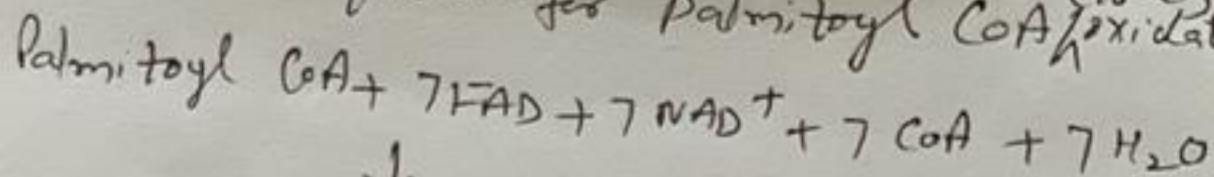 for Palmitoyl CoA oxidat
Palmitoyl CoA + 7 FAD + 7 NAD⁺ + 7 CoA + 7 H₂O